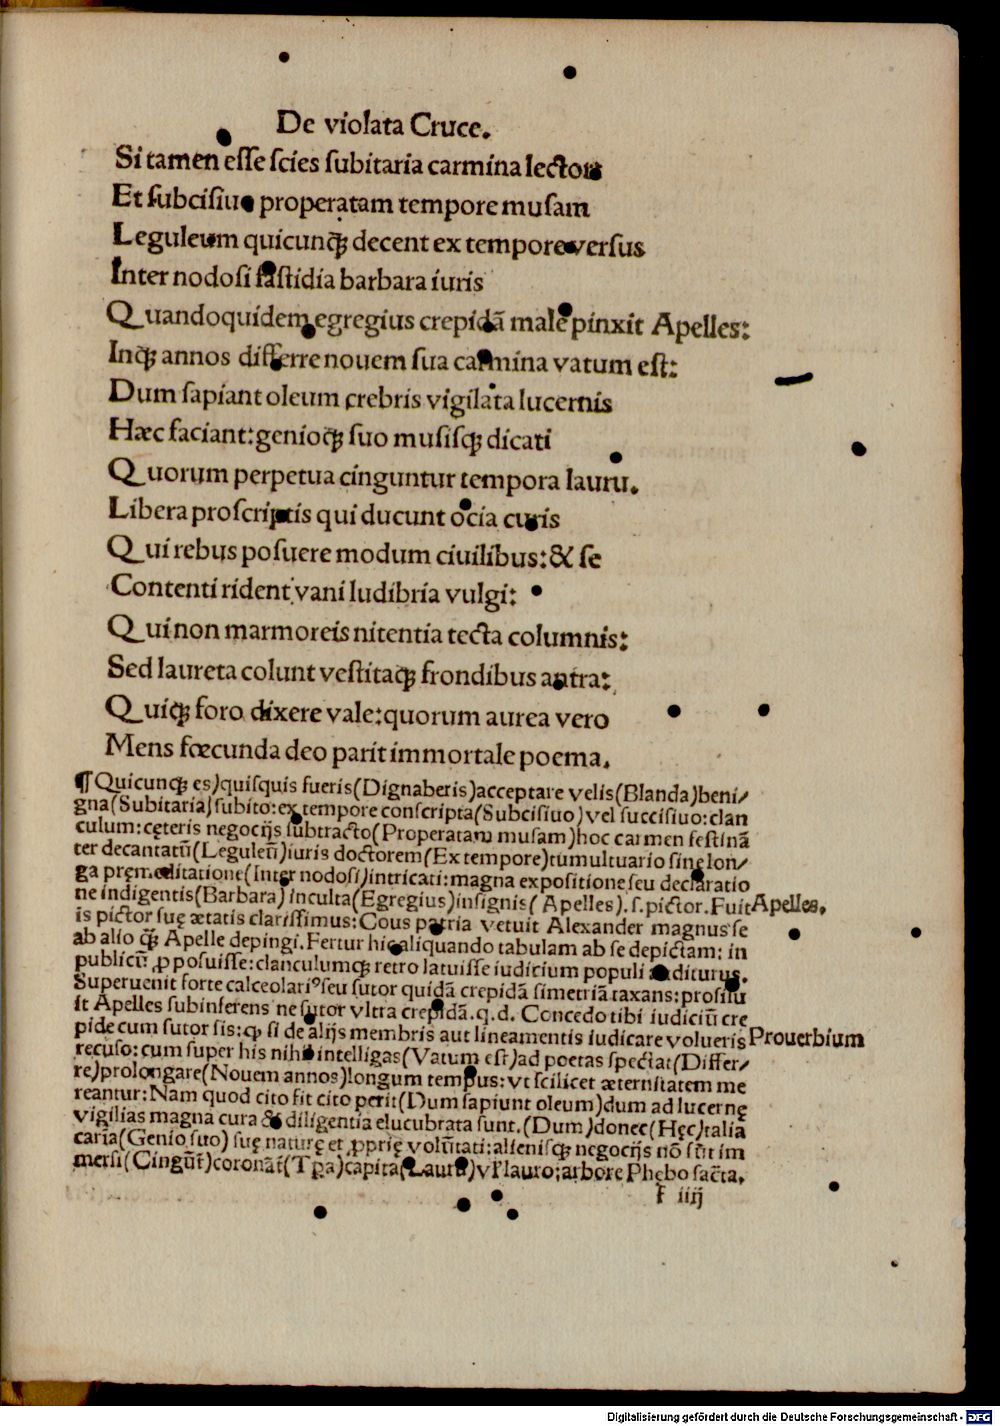 De violata Cruce.
Si tamen esse scies subitaria carmina lector
Et subcisiuo properatam tempore musam
Leguleum quicunqꝫ decent ex tempore versus
Inter nodosi fastidia barbara iuris
Quandoquidem egregius crepidā male pinxit Apelles:
Inqꝫ annos differre nouem sua carmina vatum est:
Dum sapiant oleum crebris vigilata lucernis
Hæc faciant: genioqꝫ suo musisqꝫ dicati
Quorum perpetua cinguntur tempora lauru.
Libera proscriptis qui ducunt ocia curis
Qui rebus posuere modum ciuilibus: & se
Contenti rident vani ludibria vulgi:
Qui non marmoreis nitentia tecta columnis:
Sed laureta colunt vestitaqꝫ frondibus antra:
Quiqꝫ foro dixere vale: quorum aurea vero
Mens fœcunda deo parit immortale poema.
¶ Quicunqꝫ es) quisquis fueris (Dignaberis) acceptare velis (Blanda) beni/
gna (Subitaria) subito: ex tempore conscripta (Subcisiuo) vel succisiuo: clan
culum: cęteris negocijs subtracto (Properatam musam) hoc carmen festinā
ter decantatū (Leguleū) iuris doctorem (Ex tempore) tumultuario sine lon/
ga pręmeditatione (Inter nodosi) intricati: magna expositione seu declaratio
ne indigentis (Barbara) inculta (Egregius) insignis (Apelles). s. pictor. Fuit Apelles.
is pictor suę ætatis clarissimus: Cous patria vetuit Alexander magnus se
ab alio qꝫ̄ Apelle depingi. Fertur hic aliquando tabulam ab se depictam: in
publicū ꝓposuisse: clanculumqꝫ retro latuisse iudicium populi auditurus.
Superuenit forte calceolariꝰ seu sutor quidā crepidā simetriā taxans: prosilu
it Apelles subinferens ne sutor vltra crepidā. q.d. Concedo tibi iudiciū cre
pide cum sutor sis: ꝙ si de alijs membris aut lineamentis iudicare volueris Prouerbium
recuso: cum super his nihil intelligas (Vatum est) ad poetas spectat (Differ/
re) prolongare (Nouem annos) longum tempus: vt scilicet æternitatem me
reantur: Nam quod cito fit cito perit (Dum sapiunt oleum) dum ad lucernę
vigilias magna cura & diligentia elucubrata sunt. (Dum) donec (Hęc) talia
caria (Genio suo) suę naturę et ꝓprię volūtati: alienisqꝫ negocijs nō sūt im
mersi (Cingūt) coronāt (Tꝑa) capita (Lauru) vl' lauro: arbore Phębo sacra.
f iiij
Digitalisierung gefördert durch die Deutsche Forschungsgemeinschaft - DFG